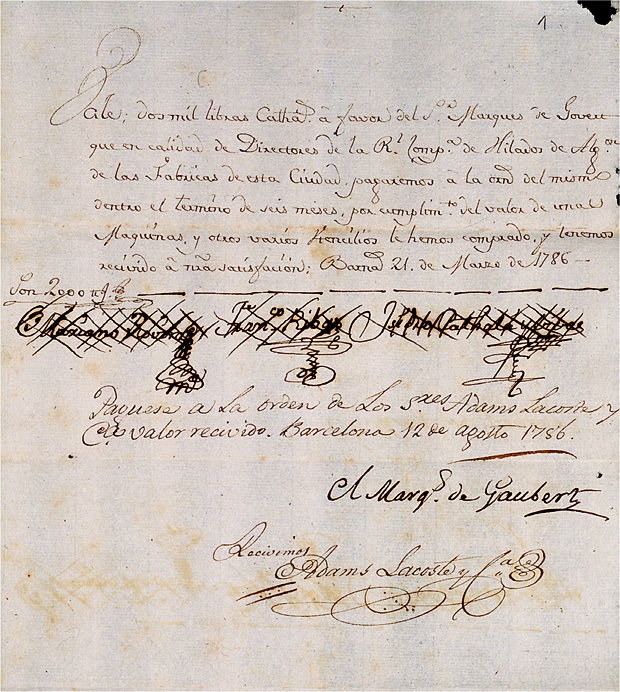 1
Vale; dos mil libras Cathas. á favor del Sr. Marques de Govert
que en calidad de Directores de la Rl. Compa. de Hilados de Algon
de las Fabricas de esta Ciudad, pagaremos á la orn del mismo
dentro el termino de seis meses, por cumplimto. del valor de unas
Maquinas, y otros varios Hencilios le hemos comprado, y tenemos
recivido á nra satisfaccion; Barna 21. de Marzo de 1786-
Son 2000
Franco Ribas
Paguese a La orden de Los Sres Adams Lacoste y
Ca valor recivido. Barcelona 12 de agosto 1786.
el Marqs. de Gaubert
Recivimos
Adams Lacoste y Ca